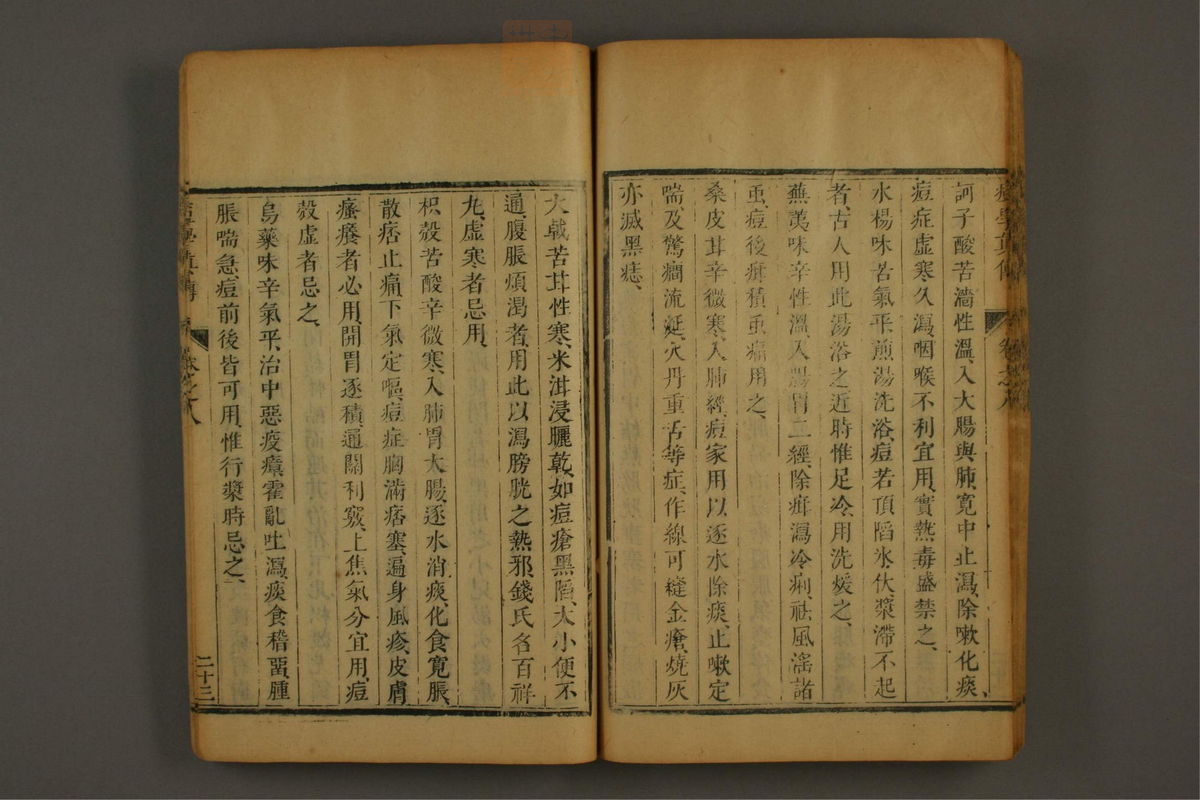 痘學真傳 卷之八
訶子酸苦濇性溫、入大腸與肺、寬中止瀉、除嗽化痰、
痘症虛寒久瀉、咽喉不利宜用、實熱毒盛禁之、
水楊味苦氣平、煎湯洗浴、痘若頂陷、氷伏漿滯不起
者、古人用此湯浴之、近時惟足冷、用洗煖之、
蕪荑味辛性溫、入腸胃二經、除癬瀉冷痢、祛風淫諸
䖝、痘後癖積䖝痛用之、
桑皮苷辛微寒、入肺經、痘家用以逐水除痰、止嗽定
喘、及驚癎流涎、火丹重舌等症、作線可縫金瘡、燒灰
亦滅黑痣、
大戟苦苷性寒、米泔浸曬乾、如痘瘡黑陷、大小便不
通、腹脹煩渴者、用此以瀉膀胱之熱邪、錢氏名百祥
丸、虛寒者忌用、
枳殼苦酸辛微寒、入肺胃大腸、逐水消痰、化食寬脹、
散痞止痛、下氣定嘔、痘症胸滿痞塞、遍身風疹、皮膚
瘙癢者必用、開胃逐積、通關利竅、上焦氣分宜用、痘
殼虛者忌之、
烏藥味辛氣平、治中惡疫癘、霍亂吐瀉、痰食稽畱、腫
脹喘急、痘前後皆可用、惟行漿時忌之、
痘學真傳 卷之八 二十三